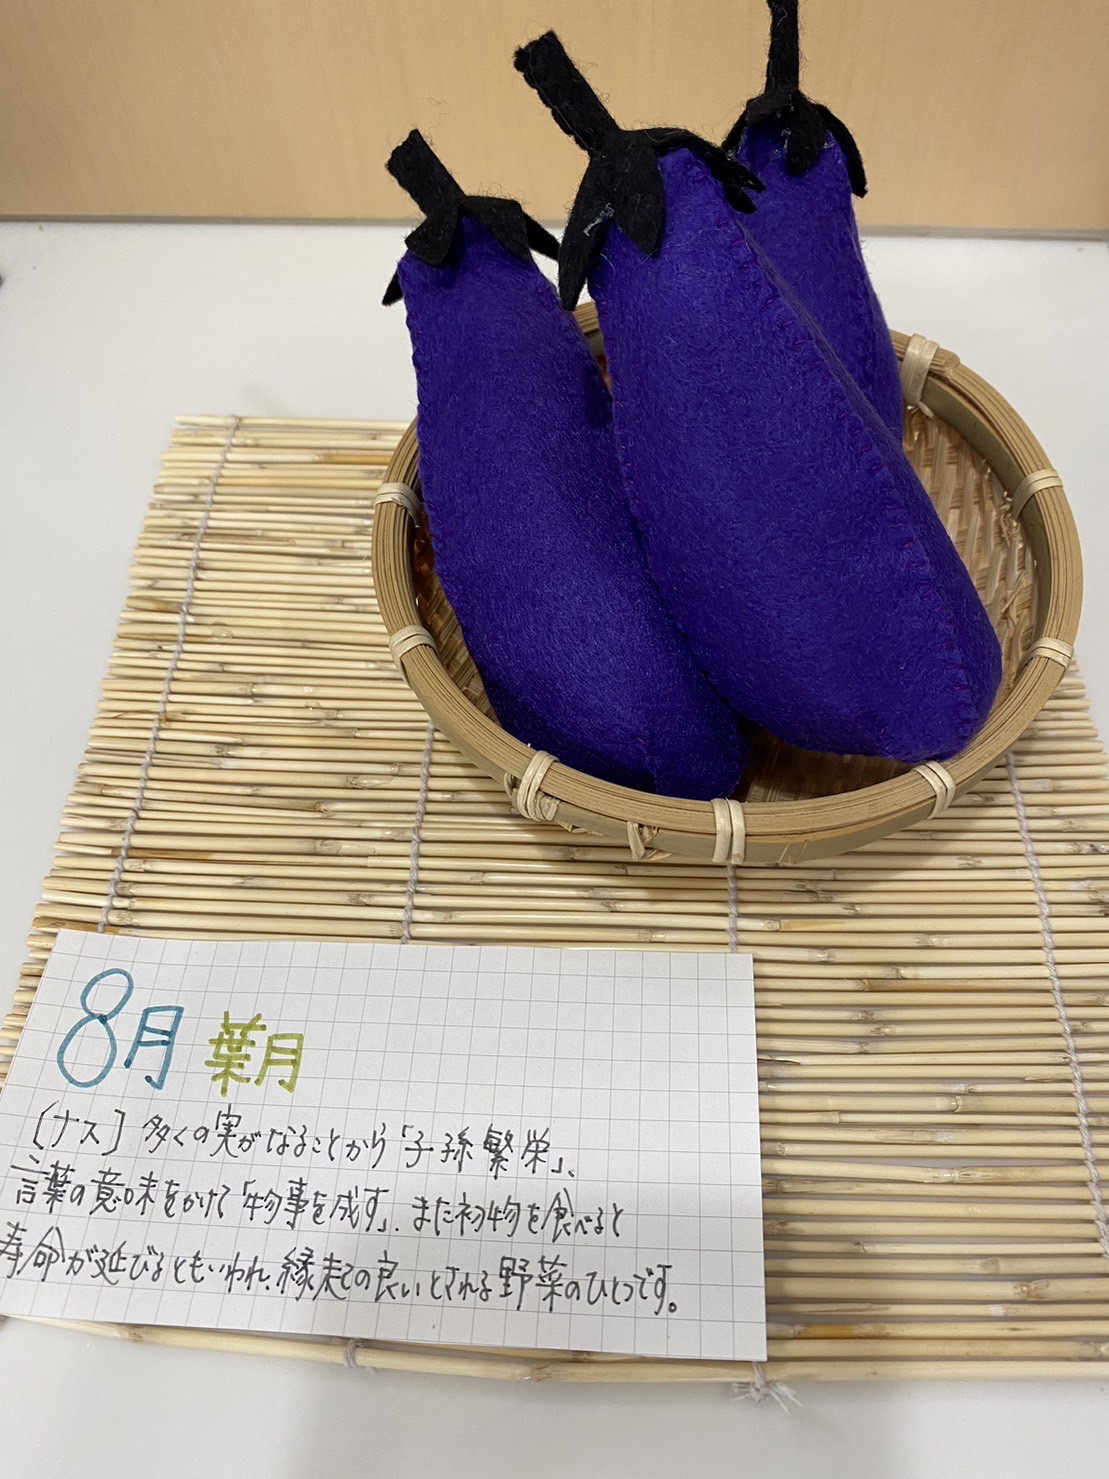 8月 葉月
[ナス] 多くの実がなることから「子孫繁栄」、
言葉の意味をかけて「物事を成す」、また初物を食べると
寿命が延びるともいわれ、縁起の良いとされる野菜のひとつです。